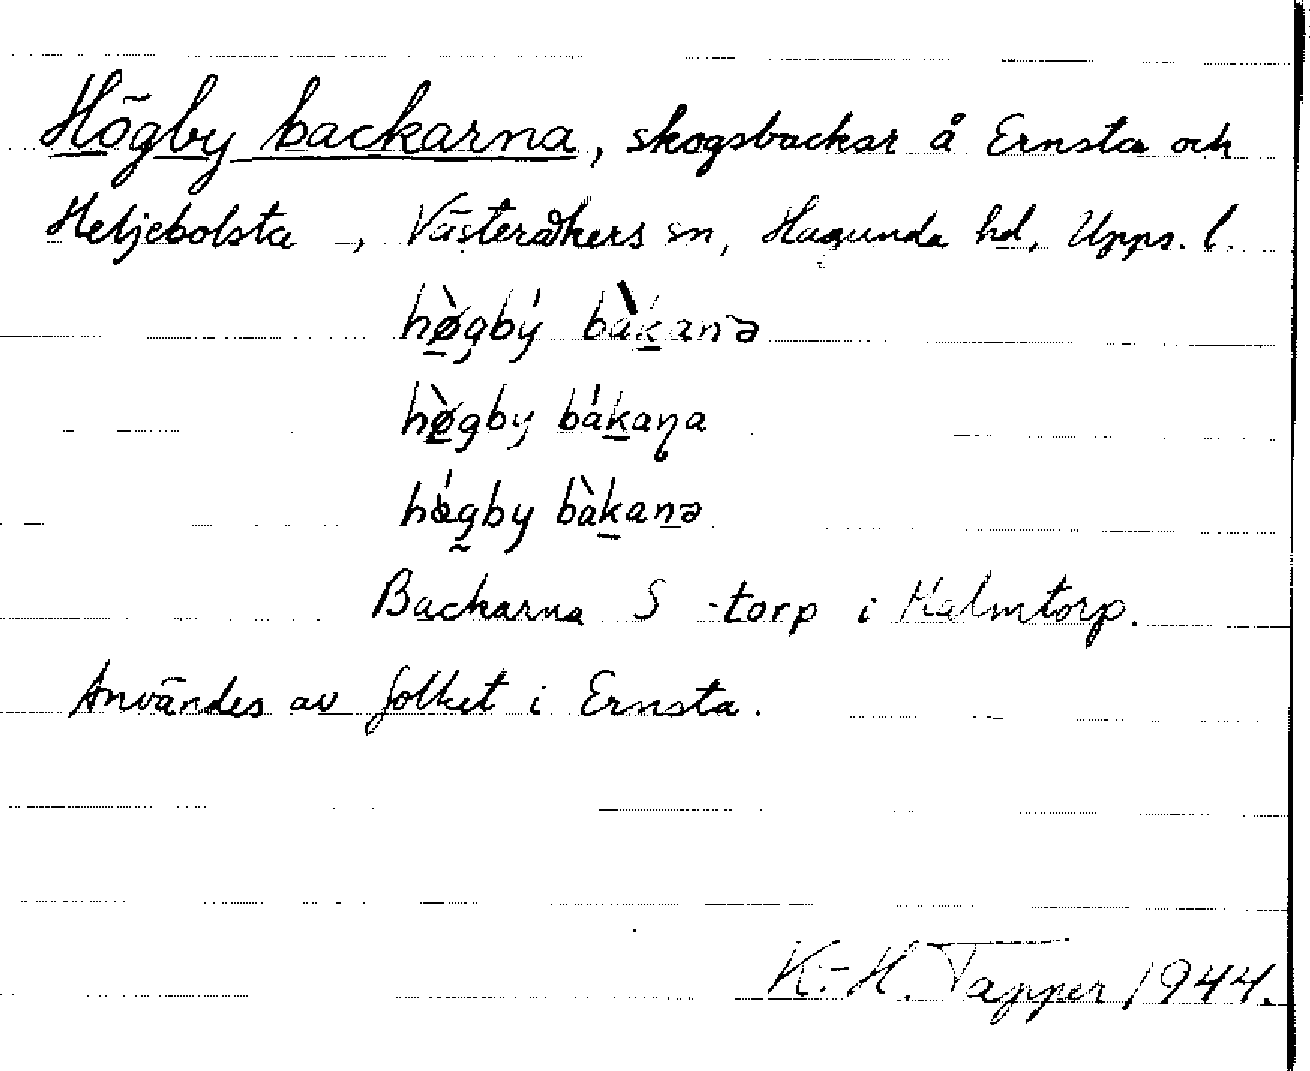 Högby backarna, skogsbackar å Ernsta och
Heljebolsta, Västeråkers sn, Hagunda hd, Upps. l.
hø̀gbý bàkanə
hø̀gby bákaṇa
hǿgby bàkanə
Backarna S -torp i Malmtorp.
Användes av folket i Ernsta.
K.-H. Tapper 1944.